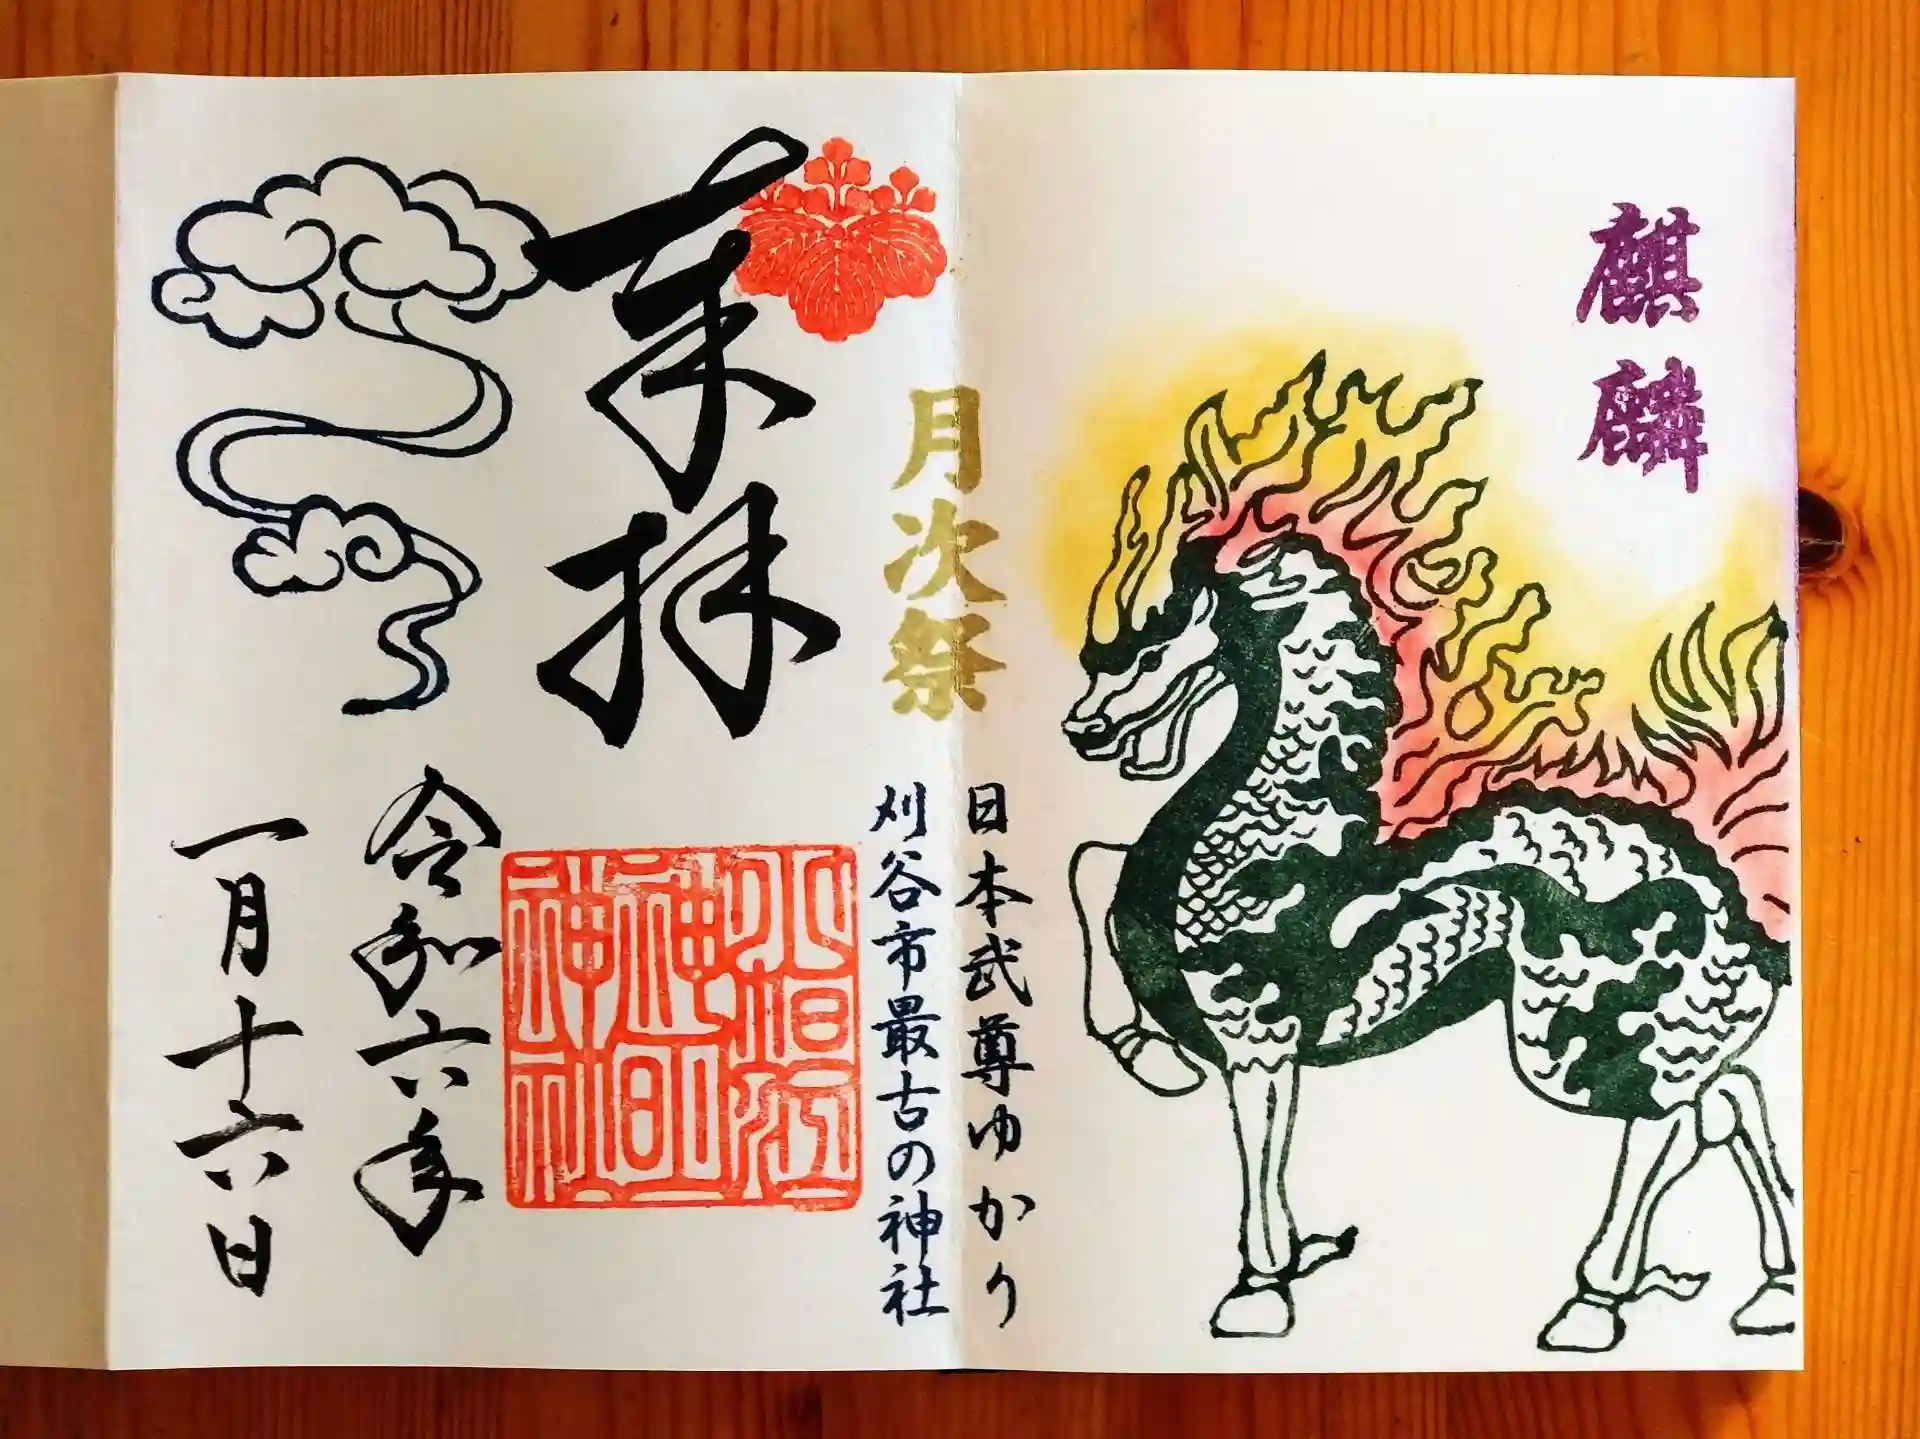 麒麟
月次祭
日本武尊ゆかり
刈谷市最古の神社
奉拝
小垣江
神明
神社
令和六年
一月十六日